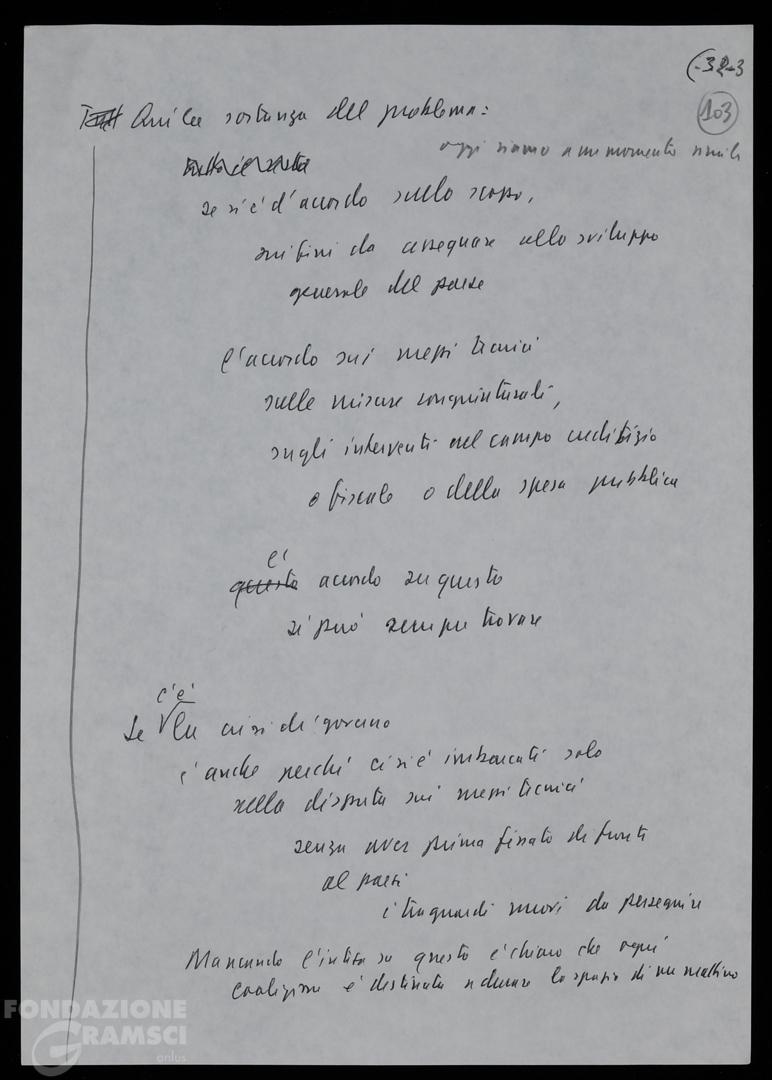 (-32-3
103
Qui la sostanza del problema:
oggi siamo a un momento simile
se si è d'accordo sullo scopo,
sui fini da assegnare allo sviluppo
generale del paese
l'accordo sui mezzi tecnici
sulle misure congiunturali,
sugli interventi nel campo creditizio
o fiscale o della spesa pubblica
è
questo acordo su questo
si può sempre trovare
c'è
Se la crisi di governo
è anche perché ci si è imbarcati solo
nella disputa sui mezzi tecnici
senza aver prima fissato di fronte
al paese
i traguardi nuovi da perseguire
Mancando l'intesa su questo è chiaro che ogni
coalizione è destinata a durare lo spazio di un mattino
FONDAZIONE
GRAMSCI
onlus